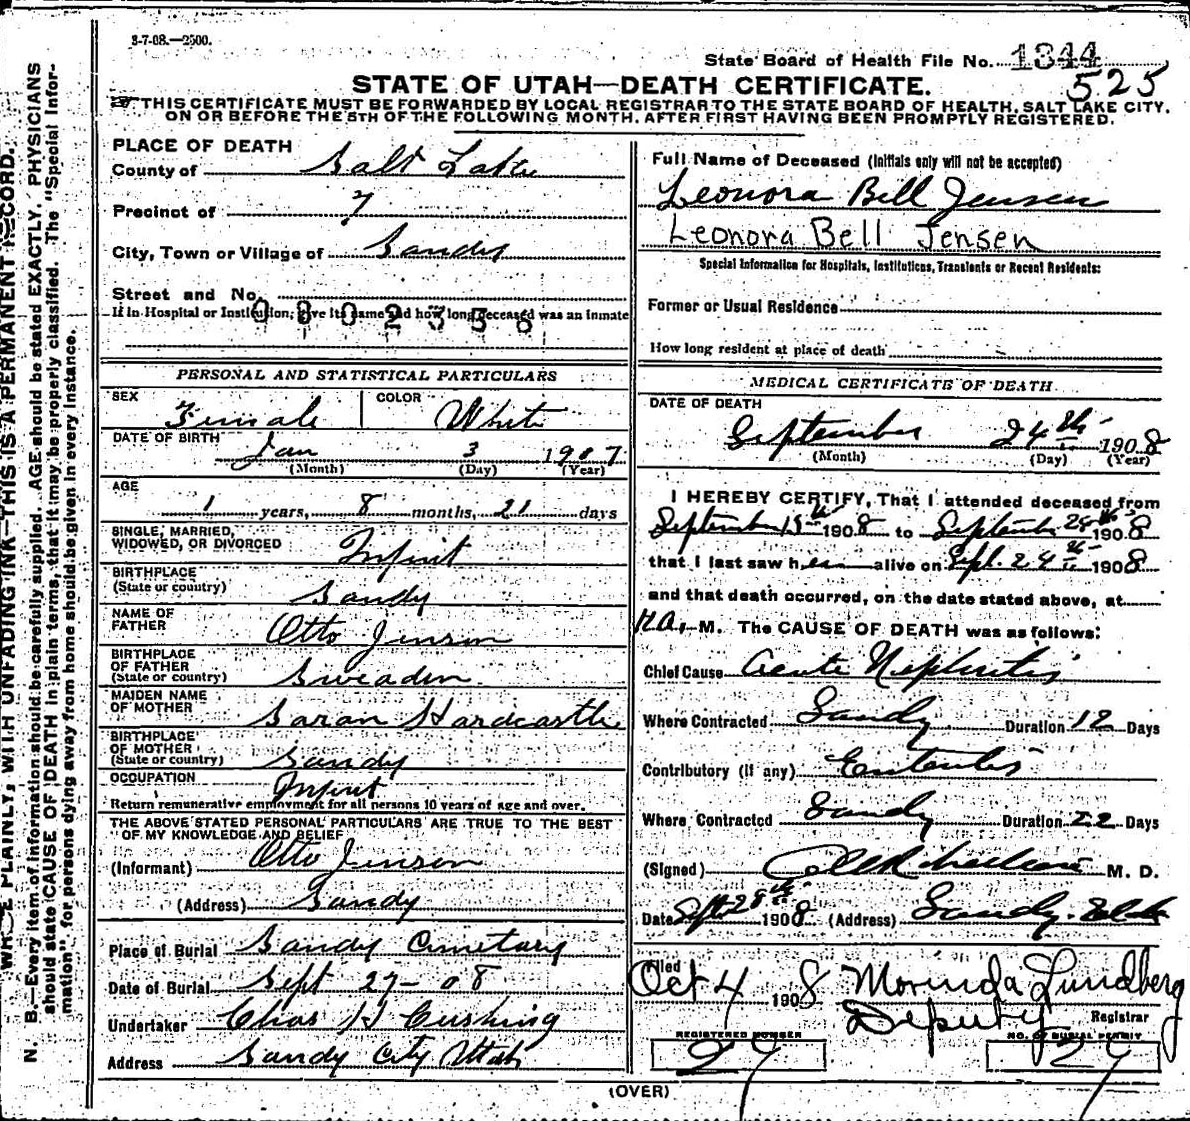 3-7-08.—2500.
State Board of Health File No. 1344
525
STATE OF UTAH—DEATH CERTIFICATE.
THIS CERTIFICATE MUST BE FORWARDED BY LOCAL REGISTRAR TO THE STATE BOARD OF HEALTH, SALT LAKE CITY,
ON OR BEFORE THE 5TH OF THE FOLLOWING MONTH, AFTER FIRST HAVING BEEN PROMPTLY REGISTERED.
PLACE OF DEATH
County of Salt Lake
Precinct of 7
City, Town or Village of Sandy
Street and No.
If in Hospital or Institution, give its name and how long deceased was an inmate
PERSONAL AND STATISTICAL PARTICULARS
SEX Female COLOR White
DATE OF BIRTH Jan 3 1907
(Month) (Day) (Year)
AGE
1 years, 8 months, 21 days
SINGLE, MARRIED,
WIDOWED, OR DIVORCED Infint
BIRTHPLACE
(State or country) Sandy
NAME OF
FATHER Otto Jenson
BIRTHPLACE
OF FATHER
(State or country) Sweaden
MAIDEN NAME
OF MOTHER Sarah Hardcastle
BIRTHPLACE
OF MOTHER
(State or country) Sandy
OCCUPATION Infint
Return remunerative employment for all persons 10 years of age and over.
THE ABOVE STATED PERSONAL PARTICULARS ARE TRUE TO THE BEST
OF MY KNOWLEDGE AND BELIEF
(Informant) Otto Jenson
(Address) Sandy
Place of Burial Sandy Cimetary
Date of Burial Sept 27- 08
Undertaker Chas H Cushing
Address Sandy City Utah
Full Name of Deceased (Initials only will not be accepted)
Leonora Bell Jensen
Leonora Bell Jensen
Special Information for Hospitals, Institutions, Transients or Recent Residents:
Former or Usual Residence
How long resident at place of death
MEDICAL CERTIFICATE OF DEATH
DATE OF DEATH
September 24th 1908
(Month) (Day) (Year)
I HEREBY CERTIFY, That I attended deceased from
September 13th 1908 to September 24th 1908
that I last saw her alive on Sept. 24th 1908
and that death occurred, on the date stated above, at
M. The CAUSE OF DEATH was as follows:
Chief Cause Acute Nephritis
Where Contracted Sandy Duration 12 Days
Contributory (if any) Enteritis
Where Contracted Sandy Duration 22 Days
(Signed) M. D.
Date Sept 28th 1908 (Address) Sandy. Utah
Filed Oct 4 1908 Morinda Lundberg
Deputy Registrar
REGISTERED NUMBER NO. OF BURIAL PERMIT
27 27
(OVER)
WRITE PLAINLY, WITH UNFADING INK—THIS IS A PERMANENT RECORD.
N. B.—Every item of information should be carefully supplied. AGE should be stated EXACTLY. PHYSICIANS
should state CAUSE OF DEATH in plain terms, that it may be properly classified. The "Special Infor-
mation" for persons dying away from home should be given in every instance.